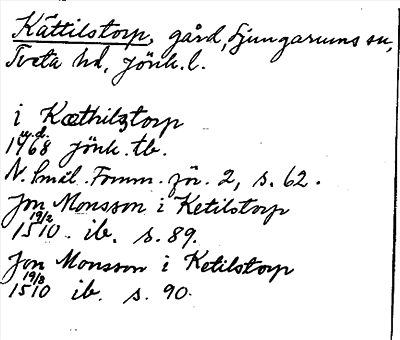 Kättilstorp, gård, Ljungarums sn,
Tveta hd, Jönk. l.
i Kæthilztorp
u.d.
1468 Jönk. tb.
N. Smål. Fornm. för. 2, s. 62.
Jon Monsson i Ketilstorp
19/2
1510. ib. s. 89.
Jon Monsson i Ketilstorp
19/8
1510 ib. s. 90.